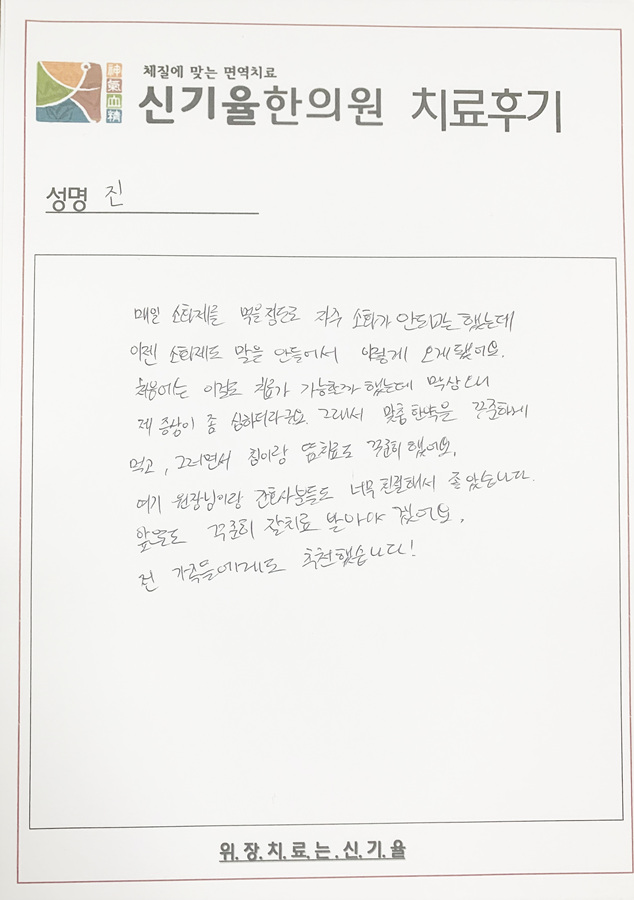 체질에 맞는 면역치료
神氣血精
신기율한의원 치료후기
성명 진
매일 소화제를 먹을정도로 자주 소화가 안되고는 했는데
이젠 소화제도 말을 안들어서 이렇게 오게됐어요.
처음에는 이걸로 치료가 가능한가 했는데 막상 오니
제 증상이 좀 심하더라구요. 그래서 맞춤한약을 꾸준하게
먹고, 그러면서 침이랑 뜸치료도 꾸준히 했어요.
여기 원장님이랑 간호사분들도 너무 친절해서 좋았습니다.
앞으로도 꾸준히 잘치료 받아야 겠어요.
전 가족들에게도 추천했습니다!
위.장.치.료.는.신.기.율